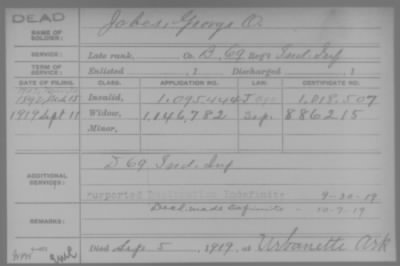 DEAD
NAME OF SOLDIER: Jobes, George O.
SERVICE: Late rank, Co. B, 69 Reg't Ind. Inf
TERM OF SERVICE: Enlisted , 1 Discharged , 1
DATE OF FILING. CLASS. APPLICATION NO. LAW. CERTIFICATE NO.
Invalid, 1,095,444 1,018,507
1919 Sept 11 Widow, 1,146,782 Sep. 886215
Minor,
ADDITIONAL SERVICES: D 69 Ind. Inf
Indefinite 9-20-19
REMARKS: made 10-7-19
Died Sep. 5, 1919, at Urbanette Ark